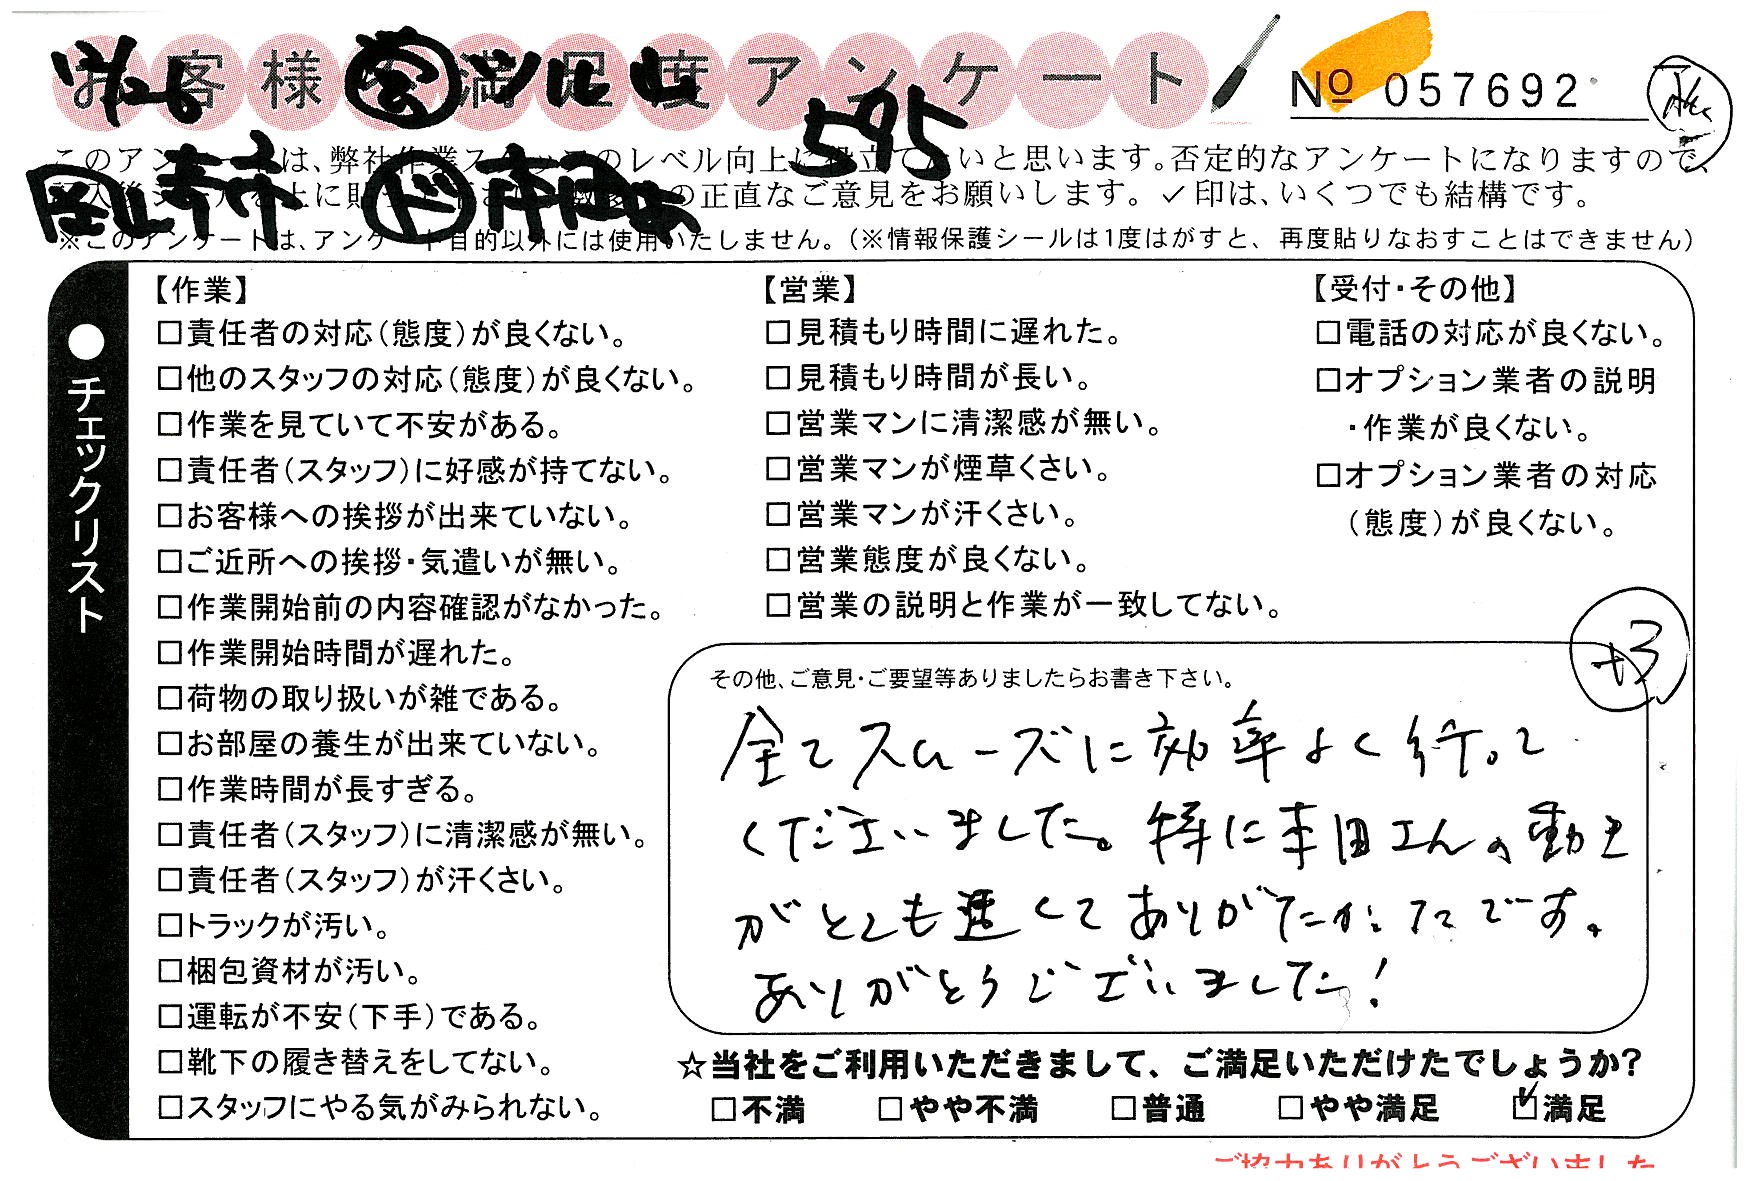 お客様の満足度アンケート
№ 057692
595
このアンケートは、弊社作業スタッフのレベル向上に役立てたいと思います。否定的なアンケートになりますので、
の正直なご意見をお願いします。✓印は、いくつでも結構です。
※このアンケートは、アンケート目的以外には使用いたしません。（※情報保護シールは1度はがすと、再度貼りなおすことはできません）
●チェックリスト
【作業】
□責任者の対応（態度）が良くない。
□他のスタッフの対応（態度）が良くない。
□作業を見ていて不安がある。
□責任者（スタッフ）に好感が持てない。
□お客様への挨拶が出来ていない。
□ご近所への挨拶・気遣いが無い。
□作業開始前の内容確認がなかった。
□作業開始時間が遅れた。
□荷物の取り扱いが雑である。
□お部屋の養生が出来ていない。
□作業時間が長すぎる。
□責任者（スタッフ）に清潔感が無い。
□責任者（スタッフ）が汗くさい。
□トラックが汚い。
□梱包資材が汚い。
□運転が不安（下手）である。
□靴下の履き替えをしてない。
□スタッフにやる気がみられない。
【営業】
□見積もり時間に遅れた。
□見積もり時間が長い。
□営業マンに清潔感が無い。
□営業マンが煙草くさい。
□営業マンが汗くさい。
□営業態度が良くない。
□営業の説明と作業が一致してない。
【受付・その他】
□電話の対応が良くない。
□オプション業者の説明
・作業が良くない。
□オプション業者の対応
（態度）が良くない。
+3
その他、ご意見・ご要望等ありましたらお書き下さい。
全てスムーズに効率よく行って
くださいました。特に本田さんの動き
がとても速くてありがたかったです。
ありがとうございました！
☆当社をご利用いただきまして、ご満足いただけたでしょうか?
□不満 □やや不満 □普通 □やや満足 ☑満足
ご協力ありがとうございました